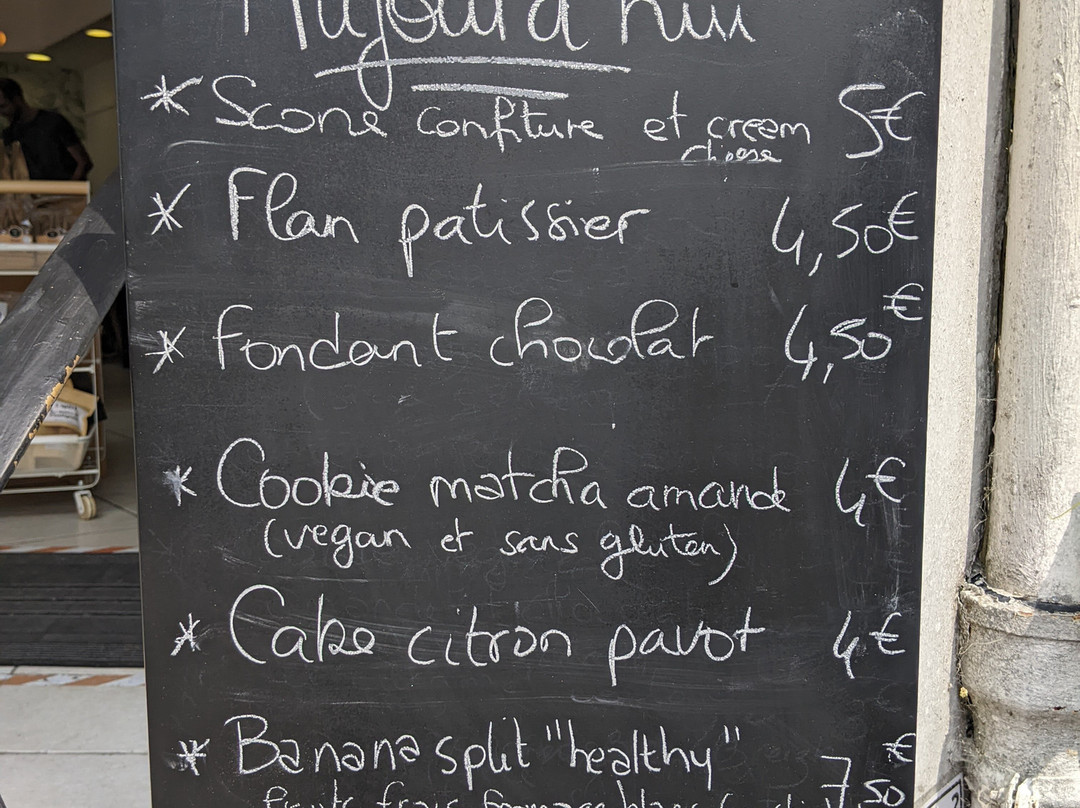 Aujourd'hui
* Scone confiture et cream 5€
cheese
* Flan patissier 4,50€
* Fondant chocolat 4,50€
* Cookie matcha amande 4€
(vegan et sans gluten)
* Cake citron pavot 4€
* Banana split "healthy" 7,50€
fruits frais fromage blanc